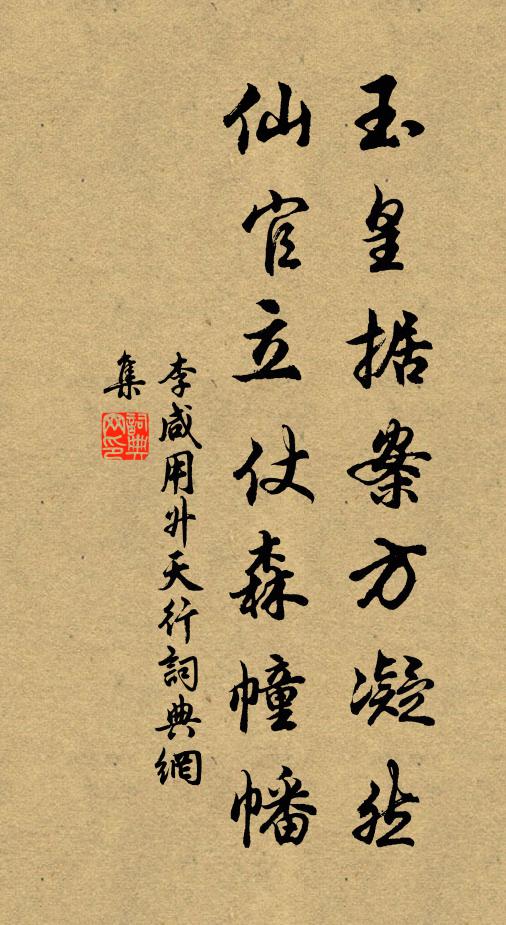 玉皇据案方凝然
仙官立仗森幢幡
李咸用升天行詞典網
集
詞典網印